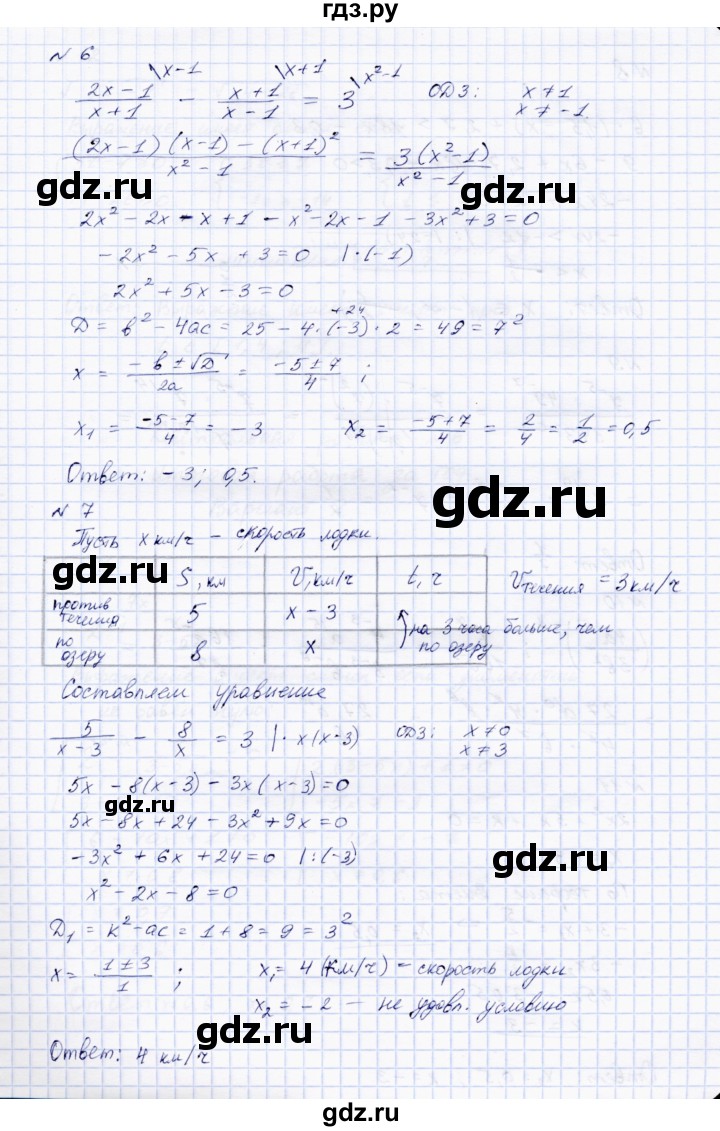 гдз.ру
№ 6
2x-1/x+1 \x-1 - x+1/x-1 \x+1 = 3 \x²-1 ОДЗ: x≠1
x≠-1.
(2x-1)(x-1)-(x+1)²/x²-1 = 3(x²-1)/x²-1
gdz.ru
2x²-2x-x+1-x²-2x-1-3x²+3=0
-2x²-5x+3=0 |·(-1)
2x²+5x-3=0
+24
D=b²-4ac=25-4·(-3)·2=49=7²
x = -b±√D/2a = -5±7/4 ;
x₁ = -5-7/4 = -3 x₂ = -5+7/4 = 2/4 = 1/2 = 0,5
Ответ: -3; 0,5.
gdz.ru
№ 7
Пусть x км/ч - скорость лодки.
gdz.ru
S, км V, км/ч t, ч Vтечения = 3км/ч
против течения 5 x-3 на 3 часа больше, чем
по озеру 8 x по озеру
gdz.ru
Составляем уравнение
5/x-3 - 8/x = 3 |·x(x-3) ОДЗ: x≠0
x≠3
5x-8(x-3)-3x(x-3)=0
gdz.ru
5x-8x+24-3x²+9x=0
-3x²+6x+24=0 |:(-3)
gdz.ru
x²-2x-8=0
D₁=k²-ac=1+8=9=3²
x = 1±3/1 ; x₁=4 (км/ч) - скорость лодки
x₂=-2 - не удовл. условию
gdz.ru
Ответ: 4 км/ч
gdz.ru